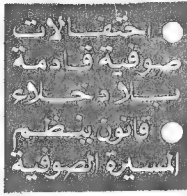 احتفالات
صوفية قادمة
بلا دخلاء
قانون ينظم
المسيرة الصوفية